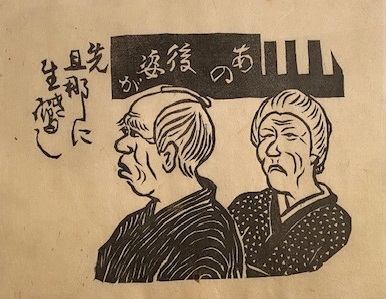 あの後姿が
先
旦那に
生き寫し